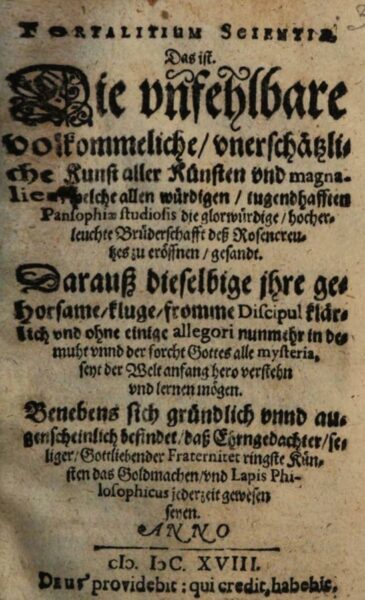 FORTALITIUM SCIENTIÆ
Das ist.
Die vnfehlbare
volkommeliche/ vnerschätzli-
che Kunst aller Künsten vnd magna-
lien/ welche allen würdigen/ tugendhafften
Pansophiæ studiosis die glorwürdige/ hocher-
leuchte Brüderschafft deß Rosencreu-
tzes zu eröffnen/ gesandt.
Darauß dieselbige jhre ge-
horsame/ kluge/ fromme Discipul klär-
lich vnd ohne einige allegori nunmehr in de-
muht vnnd der forcht Gottes alle mysteria,
seyt der Welt anfang hero verstehn
vnd lernen mögen.
Benebens sich gründlich vnnd au-
genscheinlich befindet/ daß Ehrngedachter/ se-
liger/ Gottliebender Fraternitet ringste Kün-
sten das Goldmachen/ vnd Lapis Phi-
losophicus jederzeit gewesen
seyen.
ANNO
cIɔ. IɔC. XVIII.
Deus providebit: qui credit, habebit.